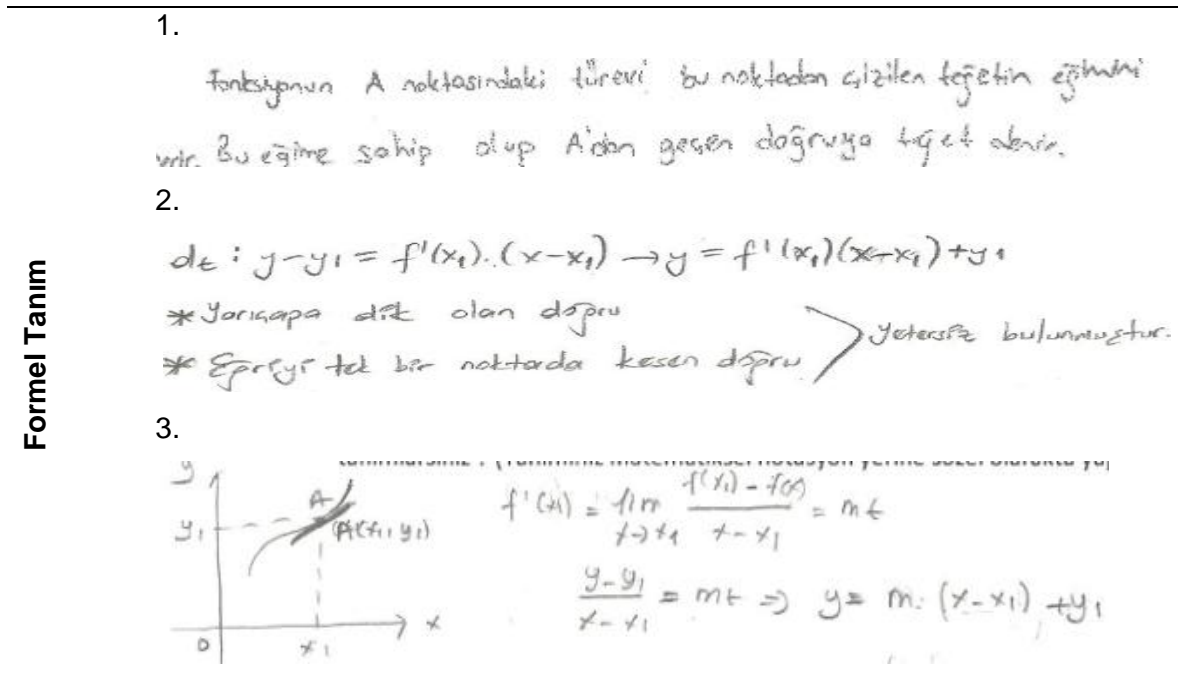 Formel Tanım
1.
Fonksiyonun A noktasındaki türevi bu noktadan çizilen teğetin eğimini
verir. Bu eğime sahip olup A'dan geçen doğruya teğet denir.
2.
dt : y-y₁ = f'(x₁).(x-x₁) → y = f'(x₁)(x-x₁)+y₁
* Yarıçapa dik olan doğru
* Eğriyi tek bir noktada kesen doğru
yetersiz bulunmuştur.
3.
y
A
y₁
A(x₁, y₁)
0
x₁
x
f'(x₁) = lim x→x₁ f(x₁) - f(x) / x - x₁ = mt
y-y₁ / x-x₁ = mt ⇒ y = m.(x-x₁) + y₁